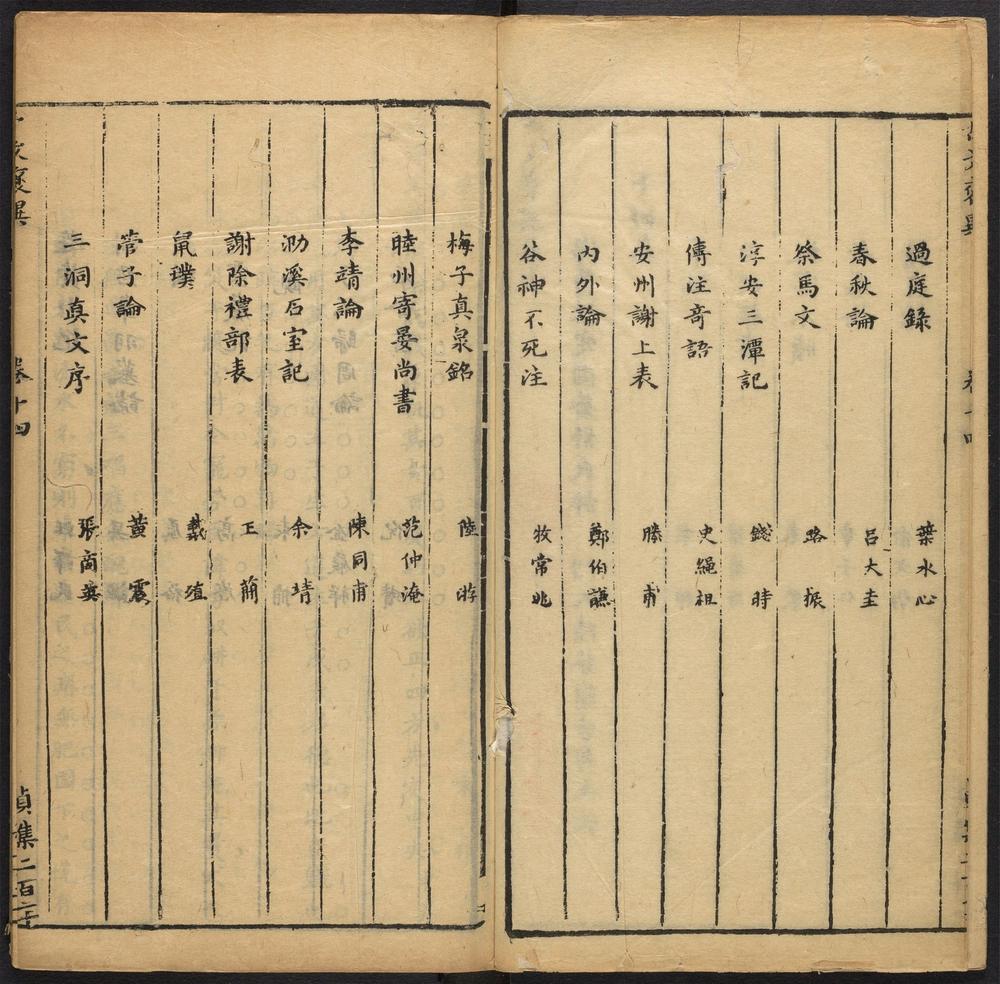 過庭錄 葉水心
春秋論 呂大圭
祭馬文 路振
淳安三潭記 錢時
傳注奇語 史繩祖
安州謝上表 滕甫
內外論 鄭伯謙
谷神不死注 牧常晁
梅子真泉銘 陸游
睦州寄晏尚書 范仲淹
李靖論 陳同甫
泐溪石室記 余靖
謝除禮部表 王
鼠璞 戴埴
管子論 黃震
三洞真文序 張商英
卷十四
貞集二百二十